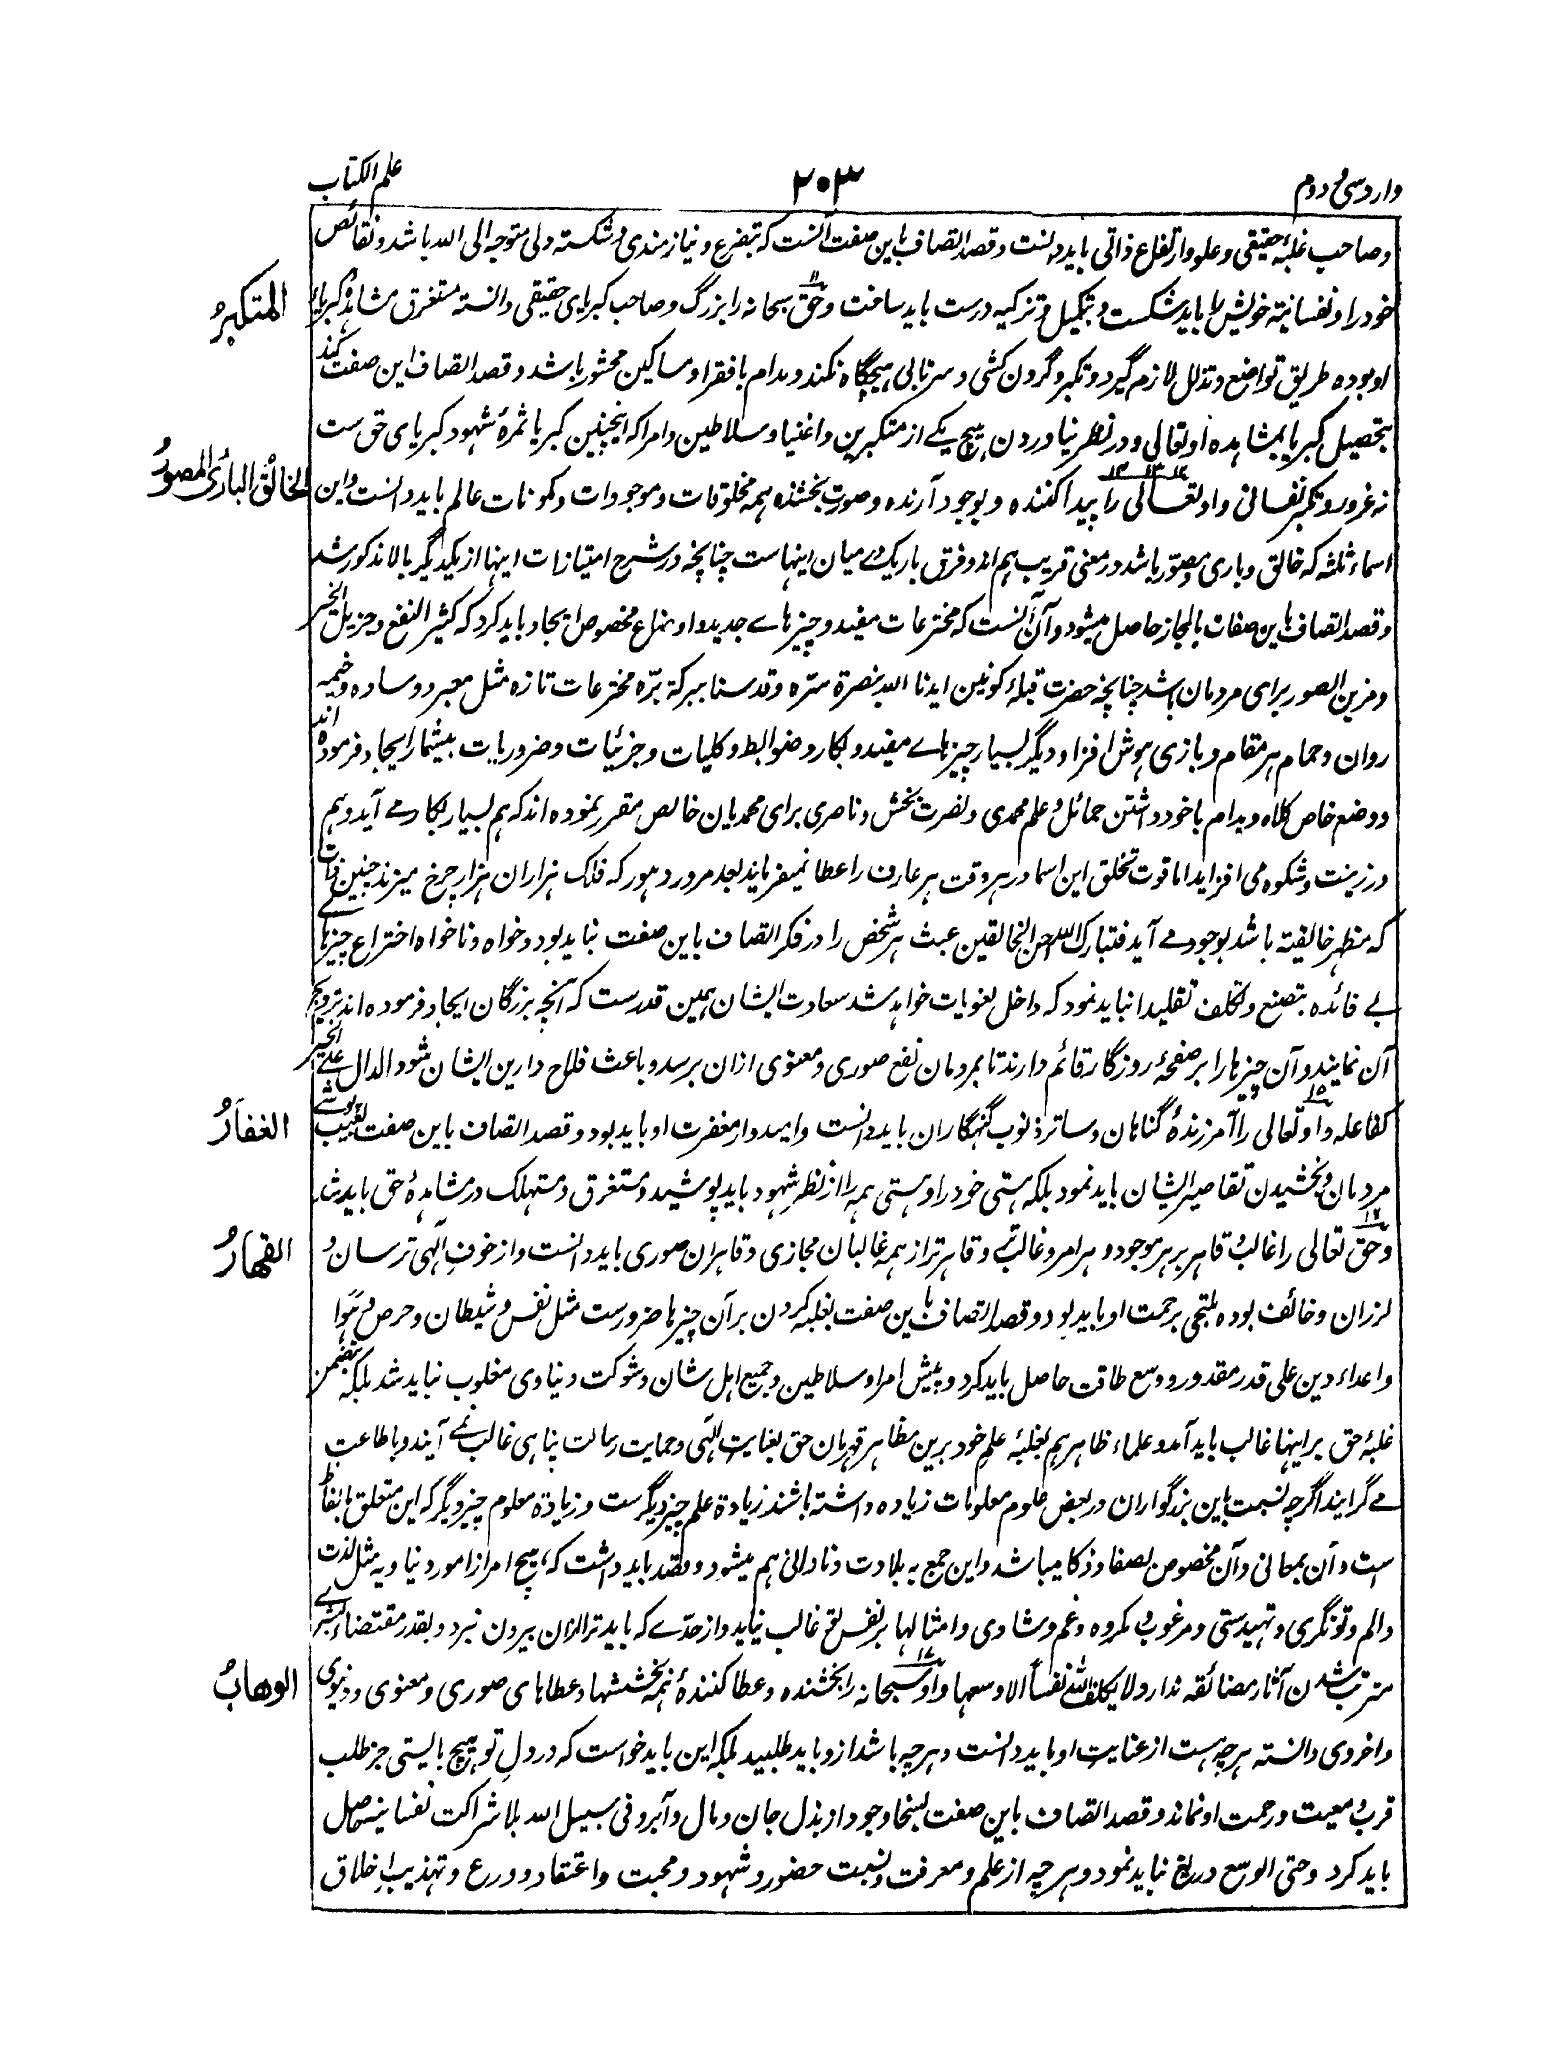 وارد سی و دوم
۲۰۳
علم الکتاب
و صاحب غلبهٔ حقیقی و علو و ارتفاع ذاتی باید دانست و قصد اتصاف باین صفت آنست که بتضرع و نیازمندی و شکسته دلی متوجه الی الله باشد و نقائص
خود را و نفسانیة خویش را باید شکست و بتکمیل و تزکیه درست باید ساخت و حق سبحانه را بزرگ و صاحب کبریای حقیقی دانسته مستغرق مشاهدهٔ کبریاء
المتکبرُ
او بوده طریق تواضع و تذلل لازم گیرد و تکبر و گردن کشی و سرتابی هیچگاه نکند و مدام با فقرا و مساکین محشور باشد و قصد اتصاف این صفت کند
بتحصیل کبریا بمشاهده او تعالی و در نظر نیاوردن هیچ یکے از متکبرین و اغنیا و سلاطین و امرا که اینچنین کبریا ثمرهٔ شهود کبریای حق ست
نه غرور و تکبر نفسانی و او تعالی را پیدا کننده و بوجود آرنده و صورت بخشنده همه مخلوقات و موجودات و مکونات عالم باید دانست و این
الخالقُ البارئُ المصورُ
۱۲ ۱۳ ۱۴
اسماء ثلثه که خالق و باری و مصوّر باشد در معنی قریب هم اند و فرق باریک در میان اینهاست چنانچه در شرح امتیازات اینها از یکدیگر بالا مذکور شد
و قصد اتصاف باین صفات بالمجاز حاصل میشود و آن آنست که مخترعات مفید و چیزهاے جدید و اوضاع مخصوص ایجاد باید کرد که کثیر النفع و جزیل الخیر
و مزین الصور برای مردمان باشد چنانچه حضرت قبلهٔ کونین ایدنا الله بنصرة سرّه و قدسنا ببرکة برّه مخترعات تازه مثل معبر و وساده و خیمه
روان و حمام هر مقام و بازی هوش افزا و دیگر بسیار چیزهاے مفید و بکار و ضوابط و کلیات و جزئیات و ضروریات بیشمار ایجاد فرموده اند
و وضع خاص کلاه و مدام با خود داشتن حمائل و علم محمدی و نصرت بخش و ناصری برای محمدیان خالص مقرر نموده اند که هم بسیار بکار مے آید و هم
در زینت و شکوه می افزاید اما قوت تخلق این اسما در هر وقت هر عارف را عطا نمیفرمایند بعد مرور دهور که فلک هزاران هزار چرخ میزند چنین ذات
که مظهر خالقیة باشد بوجود مے آید فتبارک الله احسن الخالقین عبث هر شخص را در فکر اتصاف باین صفت نباید بود و خواه و ناخواه اختراع چیزهاے
بے فائده بتصنع و تکلف تقلیدا نباید نمود که داخل لغویات خواهد شد سعادت ایشان همین قدرست که آنچه بزرگان ایجاد فرموده اند ترویج
آن نمایند و آن چیزها را بر صفحهٔ روزگار قائم دارند تا بمردمان نفع صوری و معنوی ازان برسد و باعث فلاح دارین ایشان شود الدال علی الخیر
کفاعله و او تعالی را آمرزندهٔ گناهان و ساتر ذنوب گنهگاران باید دانست و امیدوار مغفرت او باید بود و قصد اتصاف باین صفت بعیب پوشی
۱۵
الغفارُ
مردمان و بخشیدن تقاصیر ایشان باید نمود بلکه هستی خود را و هستی همه را از نظر شهود باید پوشید و مستغرق و مستهلک در مشاهدهٔ حق باید شد
و حق تعالی را غالب و قاهر بر هر موجود و هر امر و غالب تر و قاهرتر از همه غالبان مجازی و قاهران صوری باید دانست و از خوفِ الٰهی ترسان و
۱۶
القهارُ
لرزان و خائف بوده ملتجی برحمت او باید بود و قصد اتصاف باین صفت بغلبه کردن بر آن چیزها ضرورست مثل نفس و شیطان و حرص و هوا
و اعداء دین علی قدر مقدور و وسع طاقت حاصل باید کرد و پیش امرا و سلاطین و جمیع اهل شان و شوکت دنیاوی مغلوب نباید شد بلکه بتضمن
غلبهٔ حق بر اینها غالب باید آمد و علماء ظاهر هم بغلبهٔ علم خود برین مظاهر قهرمان حق بعنایت الٰهی و حمایت رسالت پناهی غالب نمے آیند و باطاعت
مے گرایند اگرچه نسبت باین بزرگواران در بعض علوم معلومات زیاده داشته باشند زیادة علم چیز دیگرست و زیادة معلوم چیز دیگر که این متعلق بالفاظ
است و آن بمعانی و آن مخصوص بصفا و ذکا میباشد و این جمع به بلادت و نادانی هم میشود و قصد باید داشت که هیچ امر از امور دنیاویه مثل لذت
و الم و تونگری و تهیدستی و مرغوب و مکروه و غم و شادی و امثالها بر نفس تو غالب نیاید و از حدّے که باید ترا ازان بیرون نبرد و بقدر مقتضاء بشرے
مترتب شدن آثار مضائقه ندارد لا یکلف الله نفساً الا وسعها و او سبحانه را بخشنده و عطا کنندهٔ همه بخششها و عطاهای صوری و معنوی و دنیوی
۱۷
الوهابُ
و اخروی دانسته هرچه هست از عنایت او باید دانست و هرچه باشد ازو باید طلبید بلکه این باید خواست که در دلِ تو هیچ بایستی جز طلب
قرب و معیت و رحمت او نماند و قصد اتصاف باین صفت بسخا و جود از بذل جان و مال و آبرو فی سبیل الله بلا شراکت نفسانیه حاصل
باید کرد و حتی الوسع دریغ نباید نمود و هرچه از علم و معرفت و نسبت حضور و شهود و محبت و اعتقاد و ورع و تهذیب اخلاق